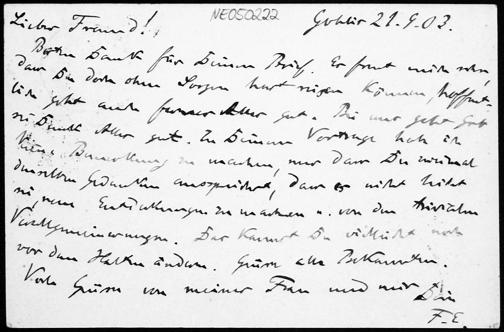 NE050222
Lieber Freund! Gohlis 21.9.03.
Besten Dank für Deinen Brief. Es freut mich sehr,
dass Du doch ohne Sorgen hast können, hoffent-
lich geht auch ferner Alles gut. Bei uns geht Gott
sei Dank Alles gut. Zu Deinem Vortrage hab ich
keine Bemerkung zu machen, nur dass Du einmal
denselben Gedanken aussprichst, dass es nicht leicht
sei, neue Entdeckungen zu machen u. von den trivialen
Verallgemeinerungen. Das kannst Du vielleicht noch
vor dem Halten ändern. Grüsse alle Bekannten.
Viele Grüsse von meiner Frau und mir Dein
F. E.